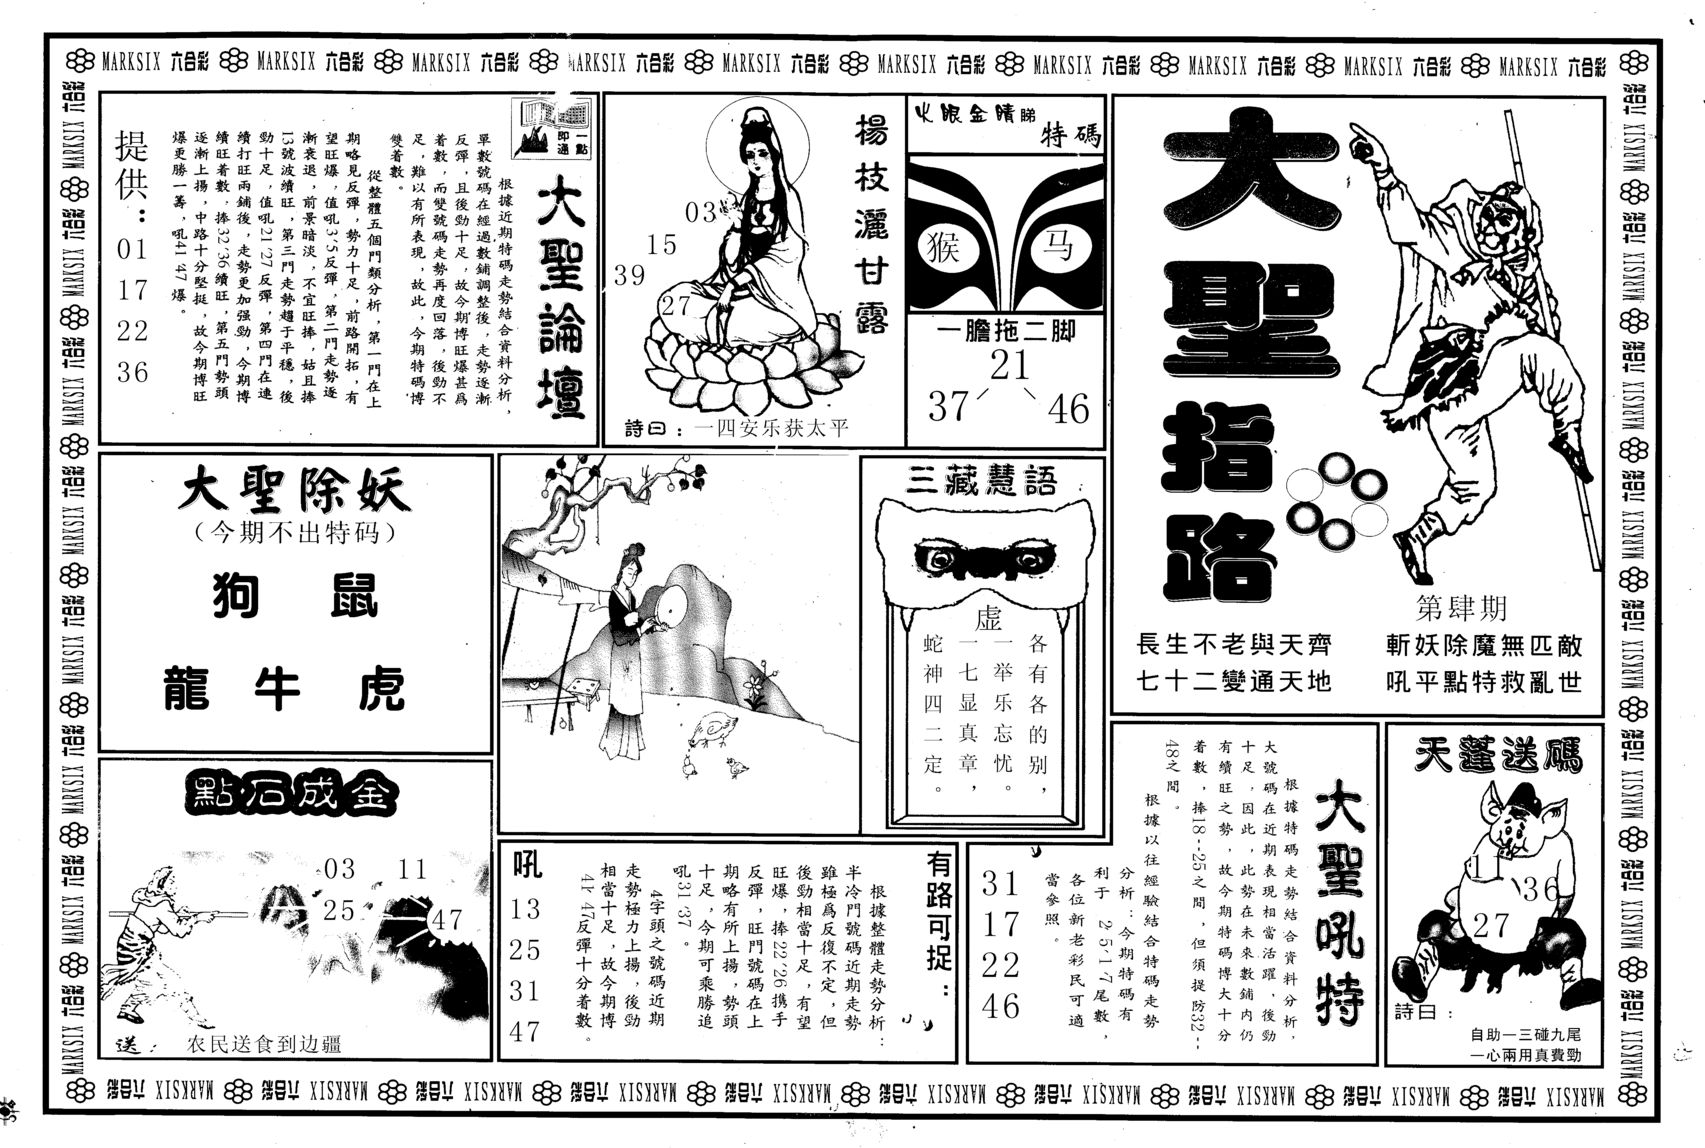 MARKSIX 六合彩 MARKSIX 六合彩 MARKSIX 六合彩 MARKSIX 六合彩 MARKSIX 六合彩 MARKSIX 六合彩 MARKSIX 六合彩 MARKSIX 六合彩 MARKSIX 六合彩 MARKSIX 六合彩
大聖指路
第肆期
長生不老與天齊
七十二變通天地
斬妖除魔無匹敵
吼平點特救亂世
火眼金睛睇
特碼
猴
马
一膽拖二脚
21
37
46
楊枝灑甘露
03
15
39
27
詩曰：一四安乐获太平
一點即通
大聖論壇
根據近期特碼走勢結合資料分析，
單數號碼在經過數鋪調整後，走勢逐漸
反彈，且後勁十足，故今期博旺爆甚爲
着數，而雙號碼走勢再度回落，後勁不
足，難以有所表現，故此，今期特碼博
雙着數。
從整體五個門類分析，第一門在上
期略見反彈，勢力十足，前路開拓，有
望旺爆，值吼3·5反彈，第二門走勢逐
漸衰退，前景暗淡，不宜旺捧，姑且捧
13號波續旺，第三門走勢趨于平穩，後
勁十足，值吼21·27反彈，第四門在連
續打旺兩鋪後，走勢更加强勁，今期博
續旺着數，捧32·36續旺，第五門勢頭
逐漸上揚，中路十分堅挺，故今期博旺
爆更勝一籌，吼41·47爆。
提供：
01
17
22
36
大聖除妖
（今期不出特码）
狗 鼠
龍 牛 虎
三藏慧語
虚
各有各的别，
一举乐忘忧。
一七显真章，
蛇神四二定。
點石成金
03
11
25
47
送： 农民送食到边疆
有路可捉：
根據整體走勢分析：
半冷門號碼近期走勢
雖極爲反復不定，但
後勁相當十足，有望
旺爆，捧22·26携手
反彈，旺門號碼在上
期略有所上揚，勢頭
十足，今期可乘勝追
吼31·37。
4字頭之號碼近期
走勢極力上揚，後勁
相當十足，故今期博
41·47反彈十分着數。
吼
13
25
31
47
大聖吼特
根據特碼走勢結合資料分析，
大號碼在近期表現相當活躍，後勁
十足，因此，此勢在未來數鋪内仍
有續旺之勢，故今期特碼博大十分
着數，捧18--25之間，但須提防32--
48之間。
根據以往經驗結合特碼走勢
分析：今期特碼有
利于 2·5·1·7尾數，
各位新老彩民可適
當參照。
31
17
22
46
天蓬送碼
11
36
27
詩曰：
自助一三碰九尾
一心兩用真費勁